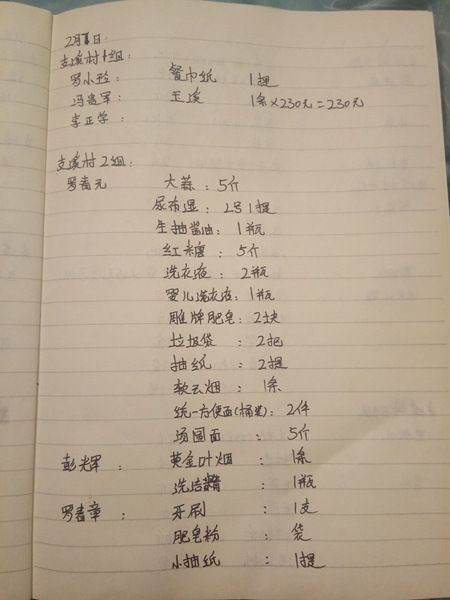 2月8日:
支溪村1组:
罗小玲: 餐巾纸 1提
冯贵军: 玉溪 1条×230元=230元
李正学:
支溪村2组:
罗春元 大蒜: 5斤
尿布湿: 2号1提
生抽酱油: 1瓶
红糖: 5斤
洗衣液: 2瓶
婴儿洗衣液: 1瓶
雕牌肥皂: 2块
垃圾袋: 2把
抽纸: 2提
软云烟: 1条
统一方便面(桶装): 2件
汤圆面: 5斤
彭光军: 黄金叶烟: 1条
洗洁精: 1瓶
罗春章: 牙刷: 1支
肥皂粉: 袋
小抽纸: 1提